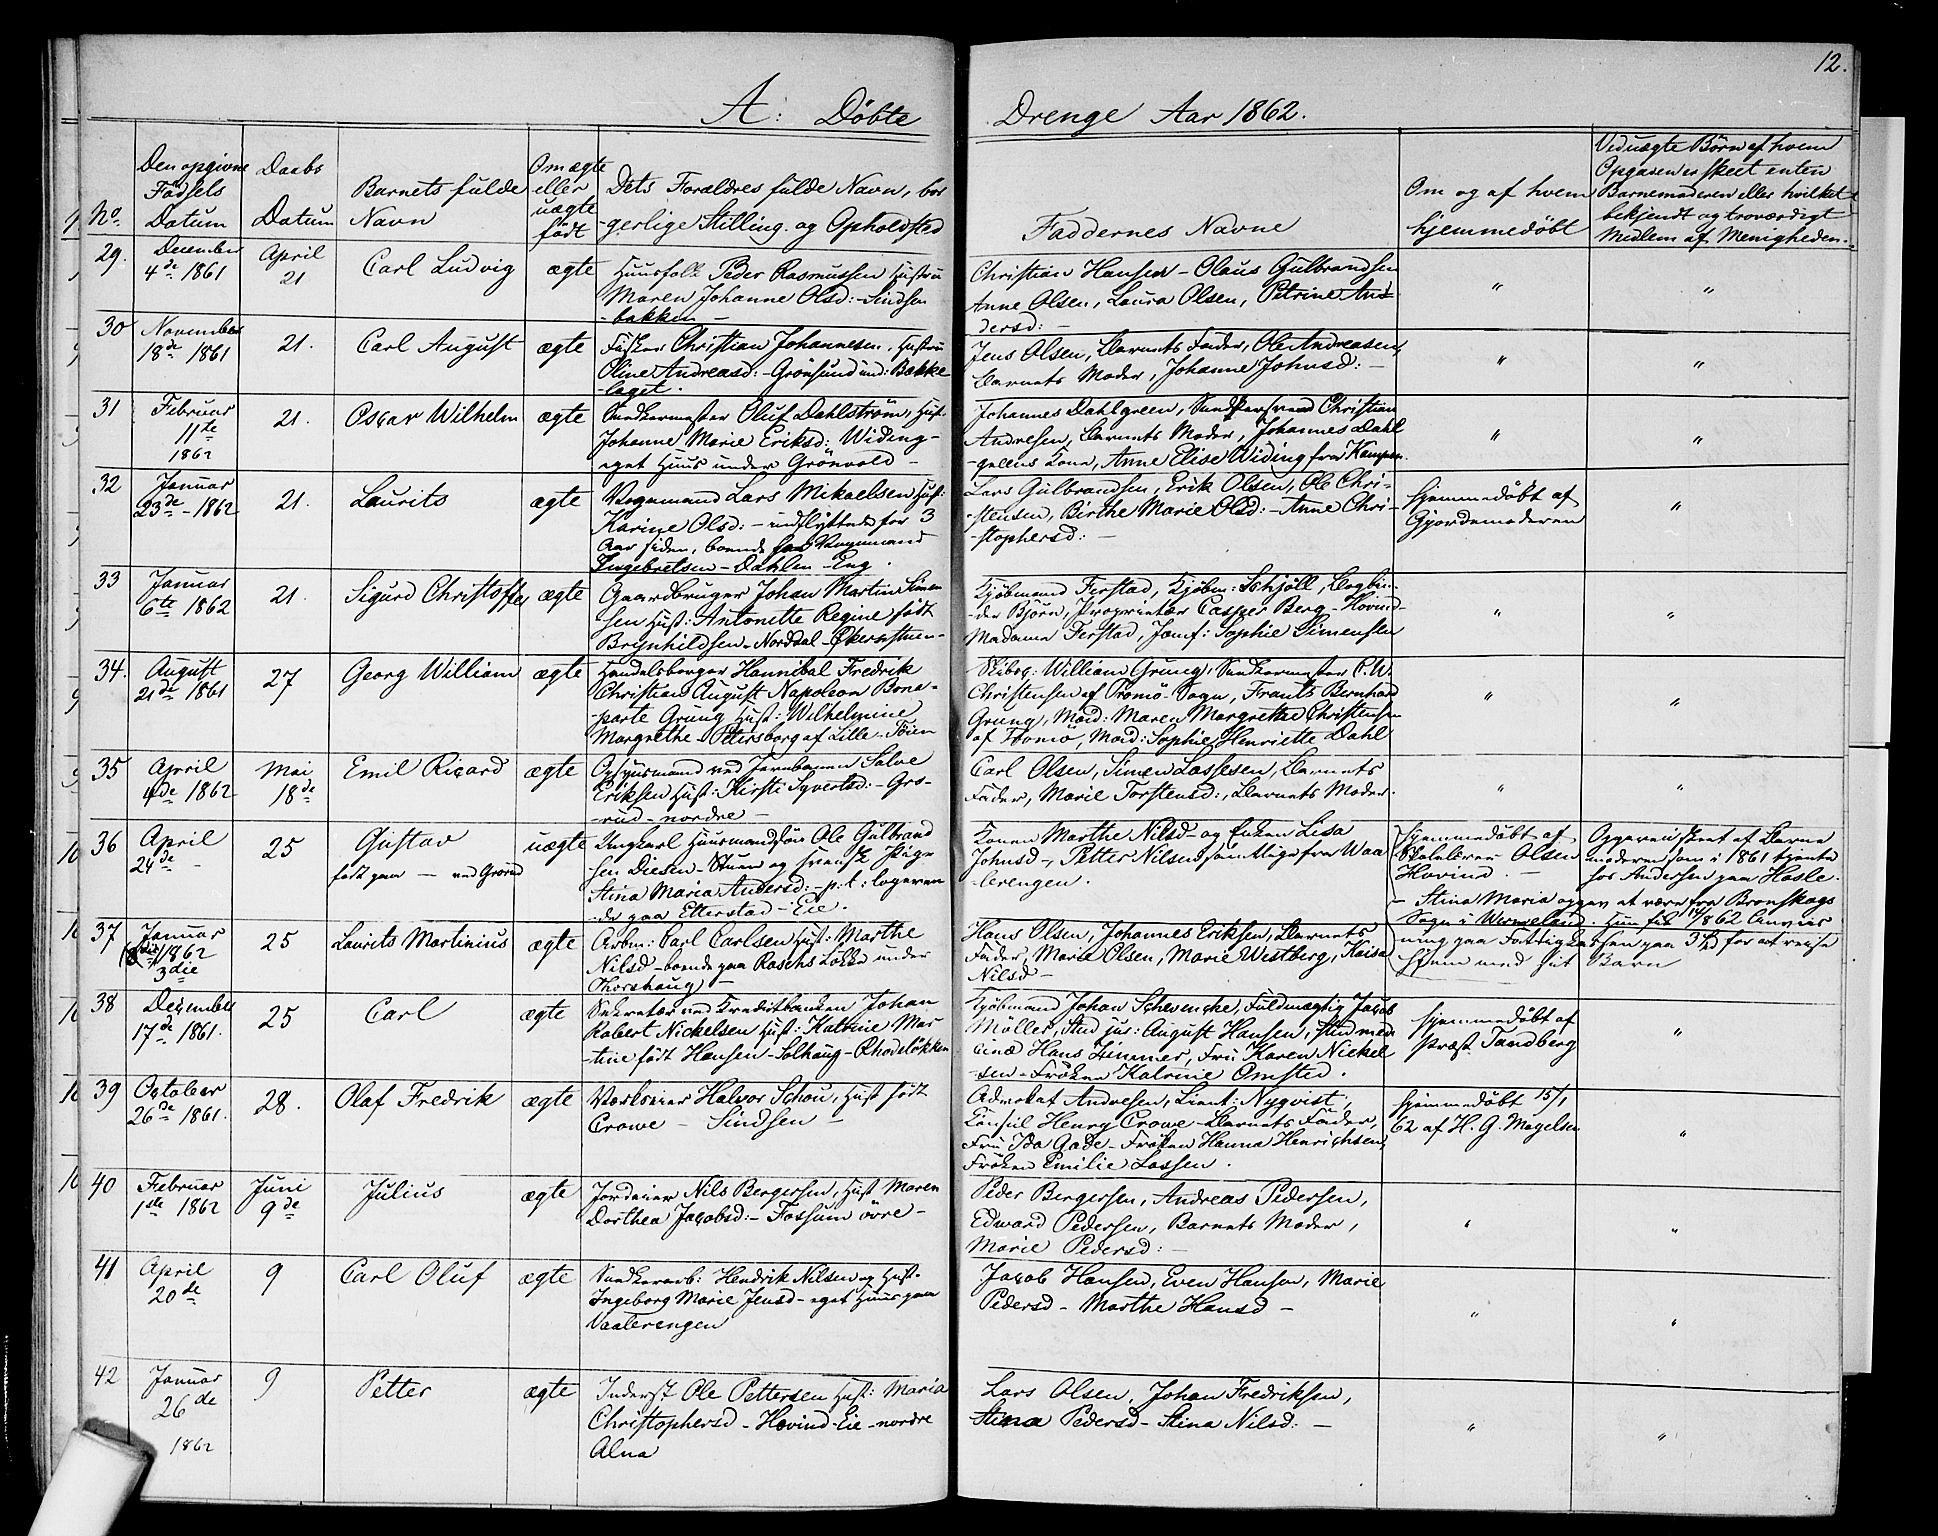 12.
A: Döbte Drenge Aar 1862.
No.
Den opgivne
Födsels
Datum
Daabs
Datum
Barnets fulde
Navn
Om ægte
eller
uægte
födt
Dets Forældres fulde Navn, bor
gerlige Stilling og Opholdsted
Faddernes Navne
Om og af hvem
hjemmedöbt
Ved uægte Börn af hvem
Opgaven er skeet enten
Barnemoderen eller hvilket
bekjendt og troværdigt
Medlem af Menigheden.
29.
December
4de 1861
April
21
Carl Ludvig
ægte
Huusfolk Peder Rasmussen Hustru
Maren Johanne Olsd: - Sindsen
-bakken -
Christian Hansen - Olaus Gulbrandsen
Anne Olsen, Laura Olsen, Petrine An-
dersd: -
"
"
30
November
18de 1861
21.
Carl August
ægte
Fisker Christian Johannesen, Hustru
Oline Andreasd: - Grönsund und: Bække
-laget.
Jens Olsen, Barnets Fader, Ole Andreasen,
Barnets Moder, Johanne Johnsd: -
"
"
31
Februar
11te
1862
21.
Oscar Wilhelm
ægte
Snedkermester Oluf Dahlström, Hust:
Johanne Marie Eriksd: Widing-
eget Huus under Grönvold -
Johannes Dahlgreen, Snedkersvend Christian
Andresen, Barnets Moder, Johannes Dahl
-greens Kone, Anne Elise Widing fra Kampen.
"
"
32
Januar
23de - 1862
21.
Laurits
ægte
Vognmand Lars Mikaelsen Hust:
Karine Olsd: - indflyttede for 3
Aar siden, boende hos Vognmand
Ingebretsen - Dahlen - Eng.
Lars Gulbrandsen, Erik Olsen, Ole Chri-
-stensen, Birthe Marie Olsd: - Anne Chri-
-stophersd: -
Hjemmedöbt af
Gjordemoderen
"
33
Januar
6te 1862
21.
Sigurd Christoffer
ægte
Gaardbruger Johan Martin Simen
sen Hust: Antonette Regine födt
Brynhildsen - Nordtal - Økern
Kjöbmand Ferstad, Kjöbm: Schjöll, Bogbin-
-der Björn, Proprietær Casper Berg - Hovind-
Madame Ferstad, Jomf: Sophie Simensen
"
"
34.
August
21de 1861
27
Georg William
ægte
Handelsborger Hannibal Fredrik
Christian August Napoleon Bona-
-parte Grung Hust: Wilhelmine
Margrethe - Petersborg af Lille - Töien
Skibscp: William Grung, Snedkermester P.W.
Christensen af Tromö - Sogn, Frants Bernhard
Grung, Moid: Maren Margrethe Christensen
af Tromö, Moid: Sophie Henriette Dahl
"
"
35
April
4de 1862
Mai
18de
Emil Ricard
ægte
Opsynsmand ved Jernbanen Salve
Eriksen Hust: Kirsti Syverted: - Gro-
-rud - nordre -
Carl Olsen, Simen Lassesen, Barnets
Fader, Marie Torstensd:, Barnets Moder.
"
"
36
April
24de -
25
Gustav
födt paa - ved Grorud
uægte
Ungkarl Huusmandssön Ole Gulbrand
sen Diesen - Stuen og svensk Pige
Stina Maria Andersd: - p.t: logeren
-de paa Etterstad - Eie.
Konen Marthe Nilsd - og Enken Lisa
Johnsd, Petter Nilsen samtlige fra Vaa
-lerengen.
Hjemmedöbt af
Skolelærer Olsen
Hovind. -
Opgaven skeet af Barne
moderen som i 1861 tjente
hos Andersen paa Hasle.
- Stina Maria opgav at være fra Brunskogs
Sogn i Wermeland. Hun fik 14/ 1862 Anvis
ning paa Fattigkassen paa 3 for at reise
hjem med sit Barn
37
Januar
1862
3die
25
Laurits Martinius
ægte
Arbm: Carl Carlsen Hust: Marthe
Nilsd - boende paa Raschs Lökke under
Thorshaug -
Hans Olsen, Johannes Eriksen, Barnets
Fader, Maria Olsen, Marie Westberg, Kaisa
Nilsd -
38
December
17de 1861.
25
Carl
ægte
Sekretær ved Kreditbanken Johan
Robert Nickelsen Hust: Katrine Mar
-tine födt Hansen - Solhaug - Rhodelökken
Kjöbmand Johan Schwencke, Fuldmægtig Jacob
Möller, Stud jus: August Hansen, Stud med
cinæ Hans Zimmer, Fru Karen Nickel
-sen - Fröken Katrine Omsted.
Hjemmedöbt af
Præst Tandberg
"
39
October
26de 1861.
28.
Olaf Fredrik
ægte
Værkseier Halvor Schou, Hust födt
Crowe - Sindsen -
Advokat Andresen, Lieut: Nyqvist,
Consul Henry Crowe - Barnets Fader,
Fru Ida Gade - Fröken Hanna Henrichsen,
Fröken Emilie Lassen.
Hjemmedöbt 15/1
62 af H. G. Magelsen
"
40
Februar
1ste 1862
Juni
9de
Julius
ægte
Jordeier Nils Bergersen, Hust Maren
Dorthea Jacobsd: - Fossum övre -
Peder Bergersen, Andreas Pedersen,
Edward Pedersen, Barnets Moder,
Marie Pedersd: -
"
"
41
April
20de
9
Carl Oluf
ægte
Snedkerarb: Hendrik Nilsen og Hust.
Ingeborg Marie Jensd - eget Huus paa
Vaalerengen
Jacob Hansen, Even Hansen, Marie
Pedersd - Marthe Hansd -
"
"
42
Januar
26de
1862
9
Petter
ægte
Inderst Ole Pettersen Hust: Maria
Christophersd - Hovind - Eie - nordre
Alna
Lars Olsen, Johan Fredriksen,
Stina Pedersd - Stina Nilsd: -
"
"